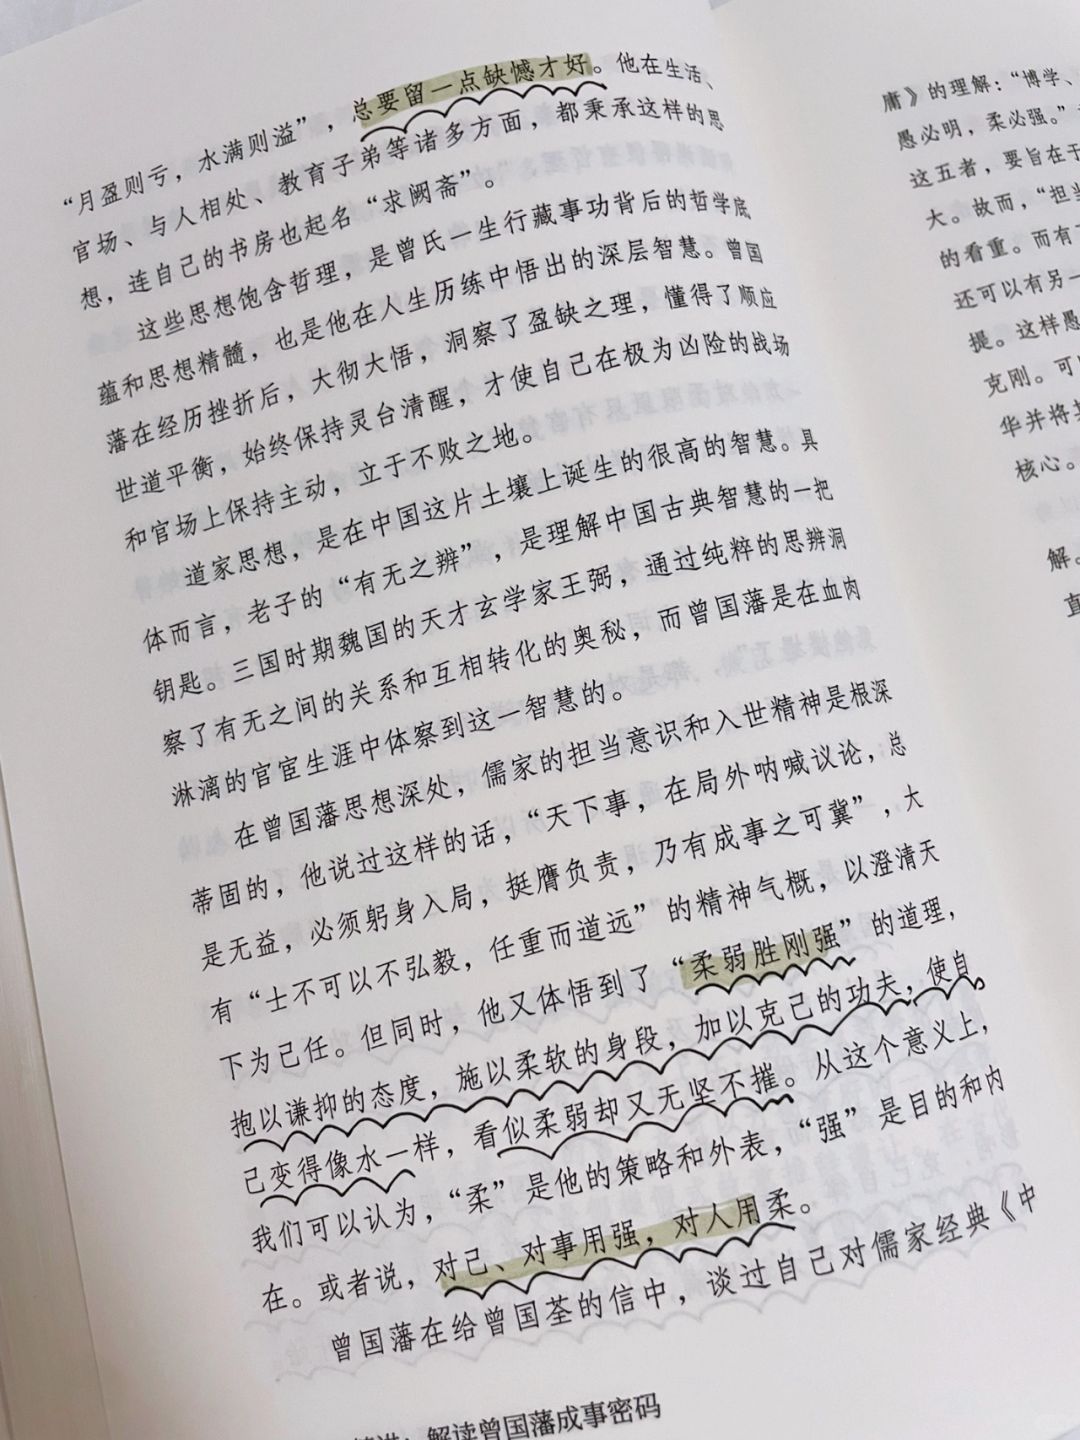 “月盈则亏，水满则溢”，总要留一点缺憾才好。他在生活、
官场、与人相处、教育子弟等诸多方面，都秉承这样的思
想，连自己的书房也起名“求阙斋”。
这些思想饱含哲理，是曾氏一生行藏事功背后的哲学底
蕴和思想精髓，也是他在人生历练中悟出的深层智慧。曾国
藩在经历挫折后，大彻大悟，洞察了盈缺之理，懂得了顺应
世道平衡，始终保持灵台清醒，才使自己在极为凶险的战场
和官场上保持主动，立于不败之地。
道家思想，是在中国这片土壤上诞生的很高的智慧。具
体而言，老子的“有无之辨”，是理解中国古典智慧的一把
钥匙。三国时期魏国的天才玄学家王弼，通过纯粹的思辨洞
察了有无之间的关系和互相转化的奥秘，而曾国藩是在血肉
淋漓的官宦生涯中体察到这一智慧的。
在曾国藩思想深处，儒家的担当意识和入世精神是根深
蒂固的，他说过这样的话，“天下事，在局外呐喊议论，总
是无益，必须躬身入局，挺膺负责，乃有成事之可冀”，大
有“士不可以不弘毅，任重而道远”的精神气概，以澄清天
下为己任。但同时，他又体悟到了“柔弱胜刚强”的道理，
抱以谦抑的态度，施以柔软的身段，加以克己的功夫，使自
己变得像水一样，看似柔弱却又无坚不摧。从这个意义上，
我们可以认为，“柔”是他的策略和外表，“强”是目的和内
在。或者说，对己、对事用强，对人用柔。
曾国藩在给曾国荃的信中，谈过自己对儒家经典《中
解读曾国藩成事密码
庸》的理解：“博学、
愚必明，柔必强。”
这五者，要旨在于
大。故而，“担当
的看重。而有
还可以有另一
提。这样愚
克刚。可
华并将
核心。
解。
直